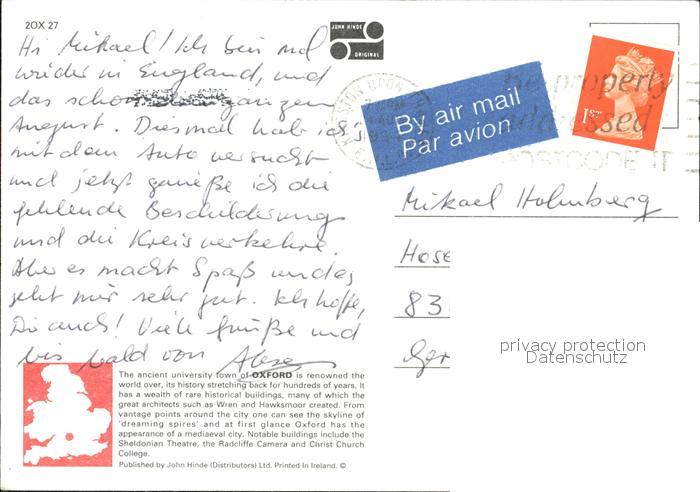 2OX 27
JOHN HINDE
ORIGINAL
Hi Mikael! Ich bin mal
wieder in England, und
das schon ganzen
August. Diesmal hab ich
mit dem Auto versucht
und jetzt genieße ich die
fehlende Beschilderung
und die Kreisverkehre.
Aber es macht Spaß und es
geht mir sehr gut. Ich hoffe,
Dir auch! Viele Grüße und
bis bald von
By air mail
Par avion
1ST
Be properly
addressed
POSTCODE IT
Mikael Holmberg
Hose
83
Ger
privacy protection
Datenschutz
The ancient university town of OXFORD is renowned the
world over, its history stretching back for hundreds of years. It
has a wealth of rare historical buildings, many of which the
great architects such as Wren and Hawksmoor created. From
vantage points around the city one can see the skyline of
'dreaming spires' and at first glance Oxford has the
appearance of a mediaeval city. Notable buildings include the
Sheldonian Theatre, the Radcliffe Camera and Christ Church
College.
Published by John Hinde (Distributors) Ltd. Printed In Ireland. ©